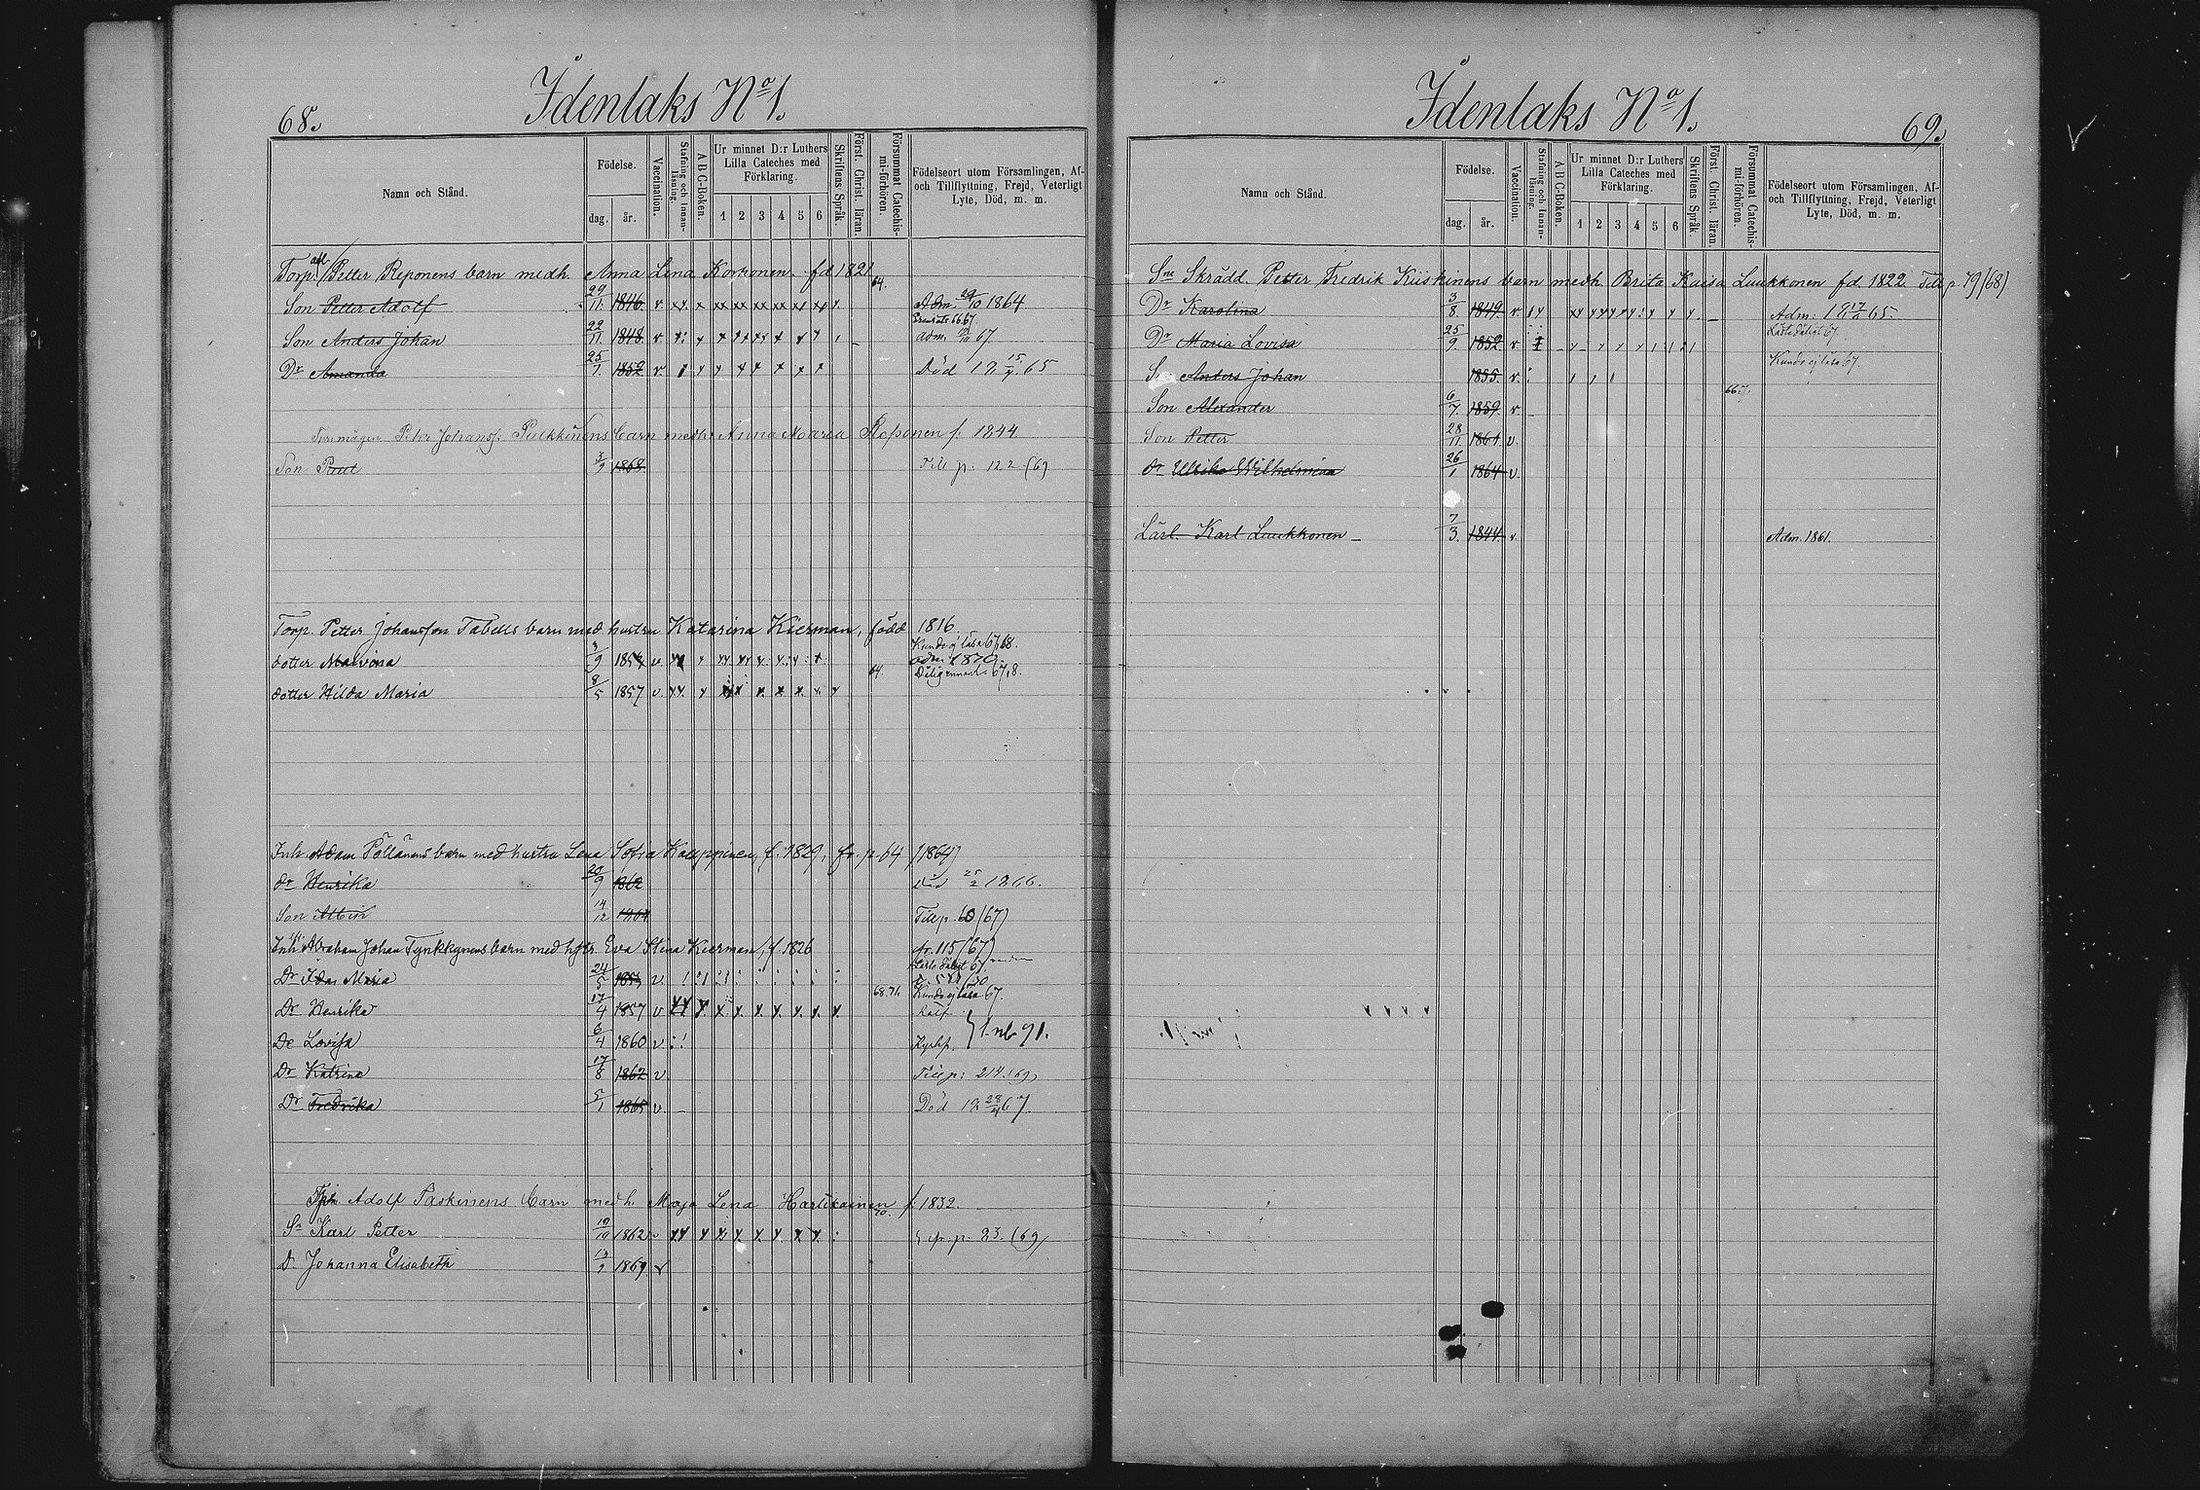 68.
Idenlaks No 1.
Namn och Stånd.
Födelse.
dag.
år.
Vaccination.
Stafning och Innanläsning.
A B C-Boken.
Ur minnet D:r Luthers Lilla Cateches med Förklaring.
1 2 3 4 5 6
Skriftens Språk.
Först. Christ. läran.
Försummat Catechismi-förhören.
Födelseort utom Församlingen, Af- och Tillflyttning, Frejd, Veterligt Lyte, Död, m. m.
Torp. Petter Reponens barn med h. Anna Lena Korhonen fd 1821
Son Petter Adolf 29/11. 1846. v. Adm. 1864
Son Anders Johan 22/11. 1848. v. adm. 67.
Dr Amanda 25/1. 1852 v. Död 15/7. 65
Peter Johanss. Pulkkinens barn med h. Anna Maria Reponen f. 1844
Son Paul 3/9 1868 Till p: 122 (69)
Torp. Petter Johansson Tabells barn med hustru Katarina Kierman, född 1816
Kunde ej läsa 67, 68.
dotter Malvina 9 1854 v. adm. 1870
dotter Hilda Maria 8/5 1857 v.
Inh Adam Pöllänens barn med hustru Lena Sofia Kauppinen, f. 1829, fr. p. 64 (1864)
dr Henrika 20/9 1862 Död 25/2 1866.
Son Albin 14/12 1864 Till p. 60 (67)
Inh Abraham Johan Tynkkynens barn med hstr. Eva Stina Kierman, f. 1826 fr. 115 (67)
Dr Ida Maria 24/5 v.
68.71. Kunde ej läsa 67.
Dr Henrika 17/4 1857 v
Dr Lovisa 6/4 1860 v 1 nb 91.
Dr Katrina 17/8 1862 v Till p: 214 (69)
Dr Fredrika 5/1 1865 v. Död 18 28/4 67.
Adolf Paskinens barn med h. Maja Lena Hartikainen f. 1832.
Sn Karl Petter 19/10 1862 v p. 83. (69)
Dr Johanna Elisabeth 1869 v
Idenlaks No 1.
69.
Namn och Stånd.
Födelse.
dag.
år.
Vaccination.
Stafning och Innanläsning.
A B C-Boken.
Ur minnet D:r Luthers Lilla Cateches med Förklaring.
1 2 3 4 5 6
Skriftens Språk.
Först. Christ. läran.
Försummat Catechismi-förhören.
Födelseort utom Församlingen, Af- och Tillflyttning, Frejd, Veterligt Lyte, Död, m. m.
Sne Skrädd. Petter Fredrik Kiiskinens barn med h. Brita Kaisa Luukkonen fd. 1822 Till p. 79 (68)
Dr Karolina 3/8. 1849. v. Adm: 65.
Läste dåligt 67.
Dr Maria Lovisa 25/9. 1852. v
Kunde ej läsa 67.
S. Anders Johan 1855. v.
Son Alexander 6/7. 1859 v.
Son Petter 28/11 1861 v.
dr Ulrika Wilhelmina 26/1 1864 v.
Lärl. Karl Luukkonen 7/3. 1844. v. Adm. 1861.